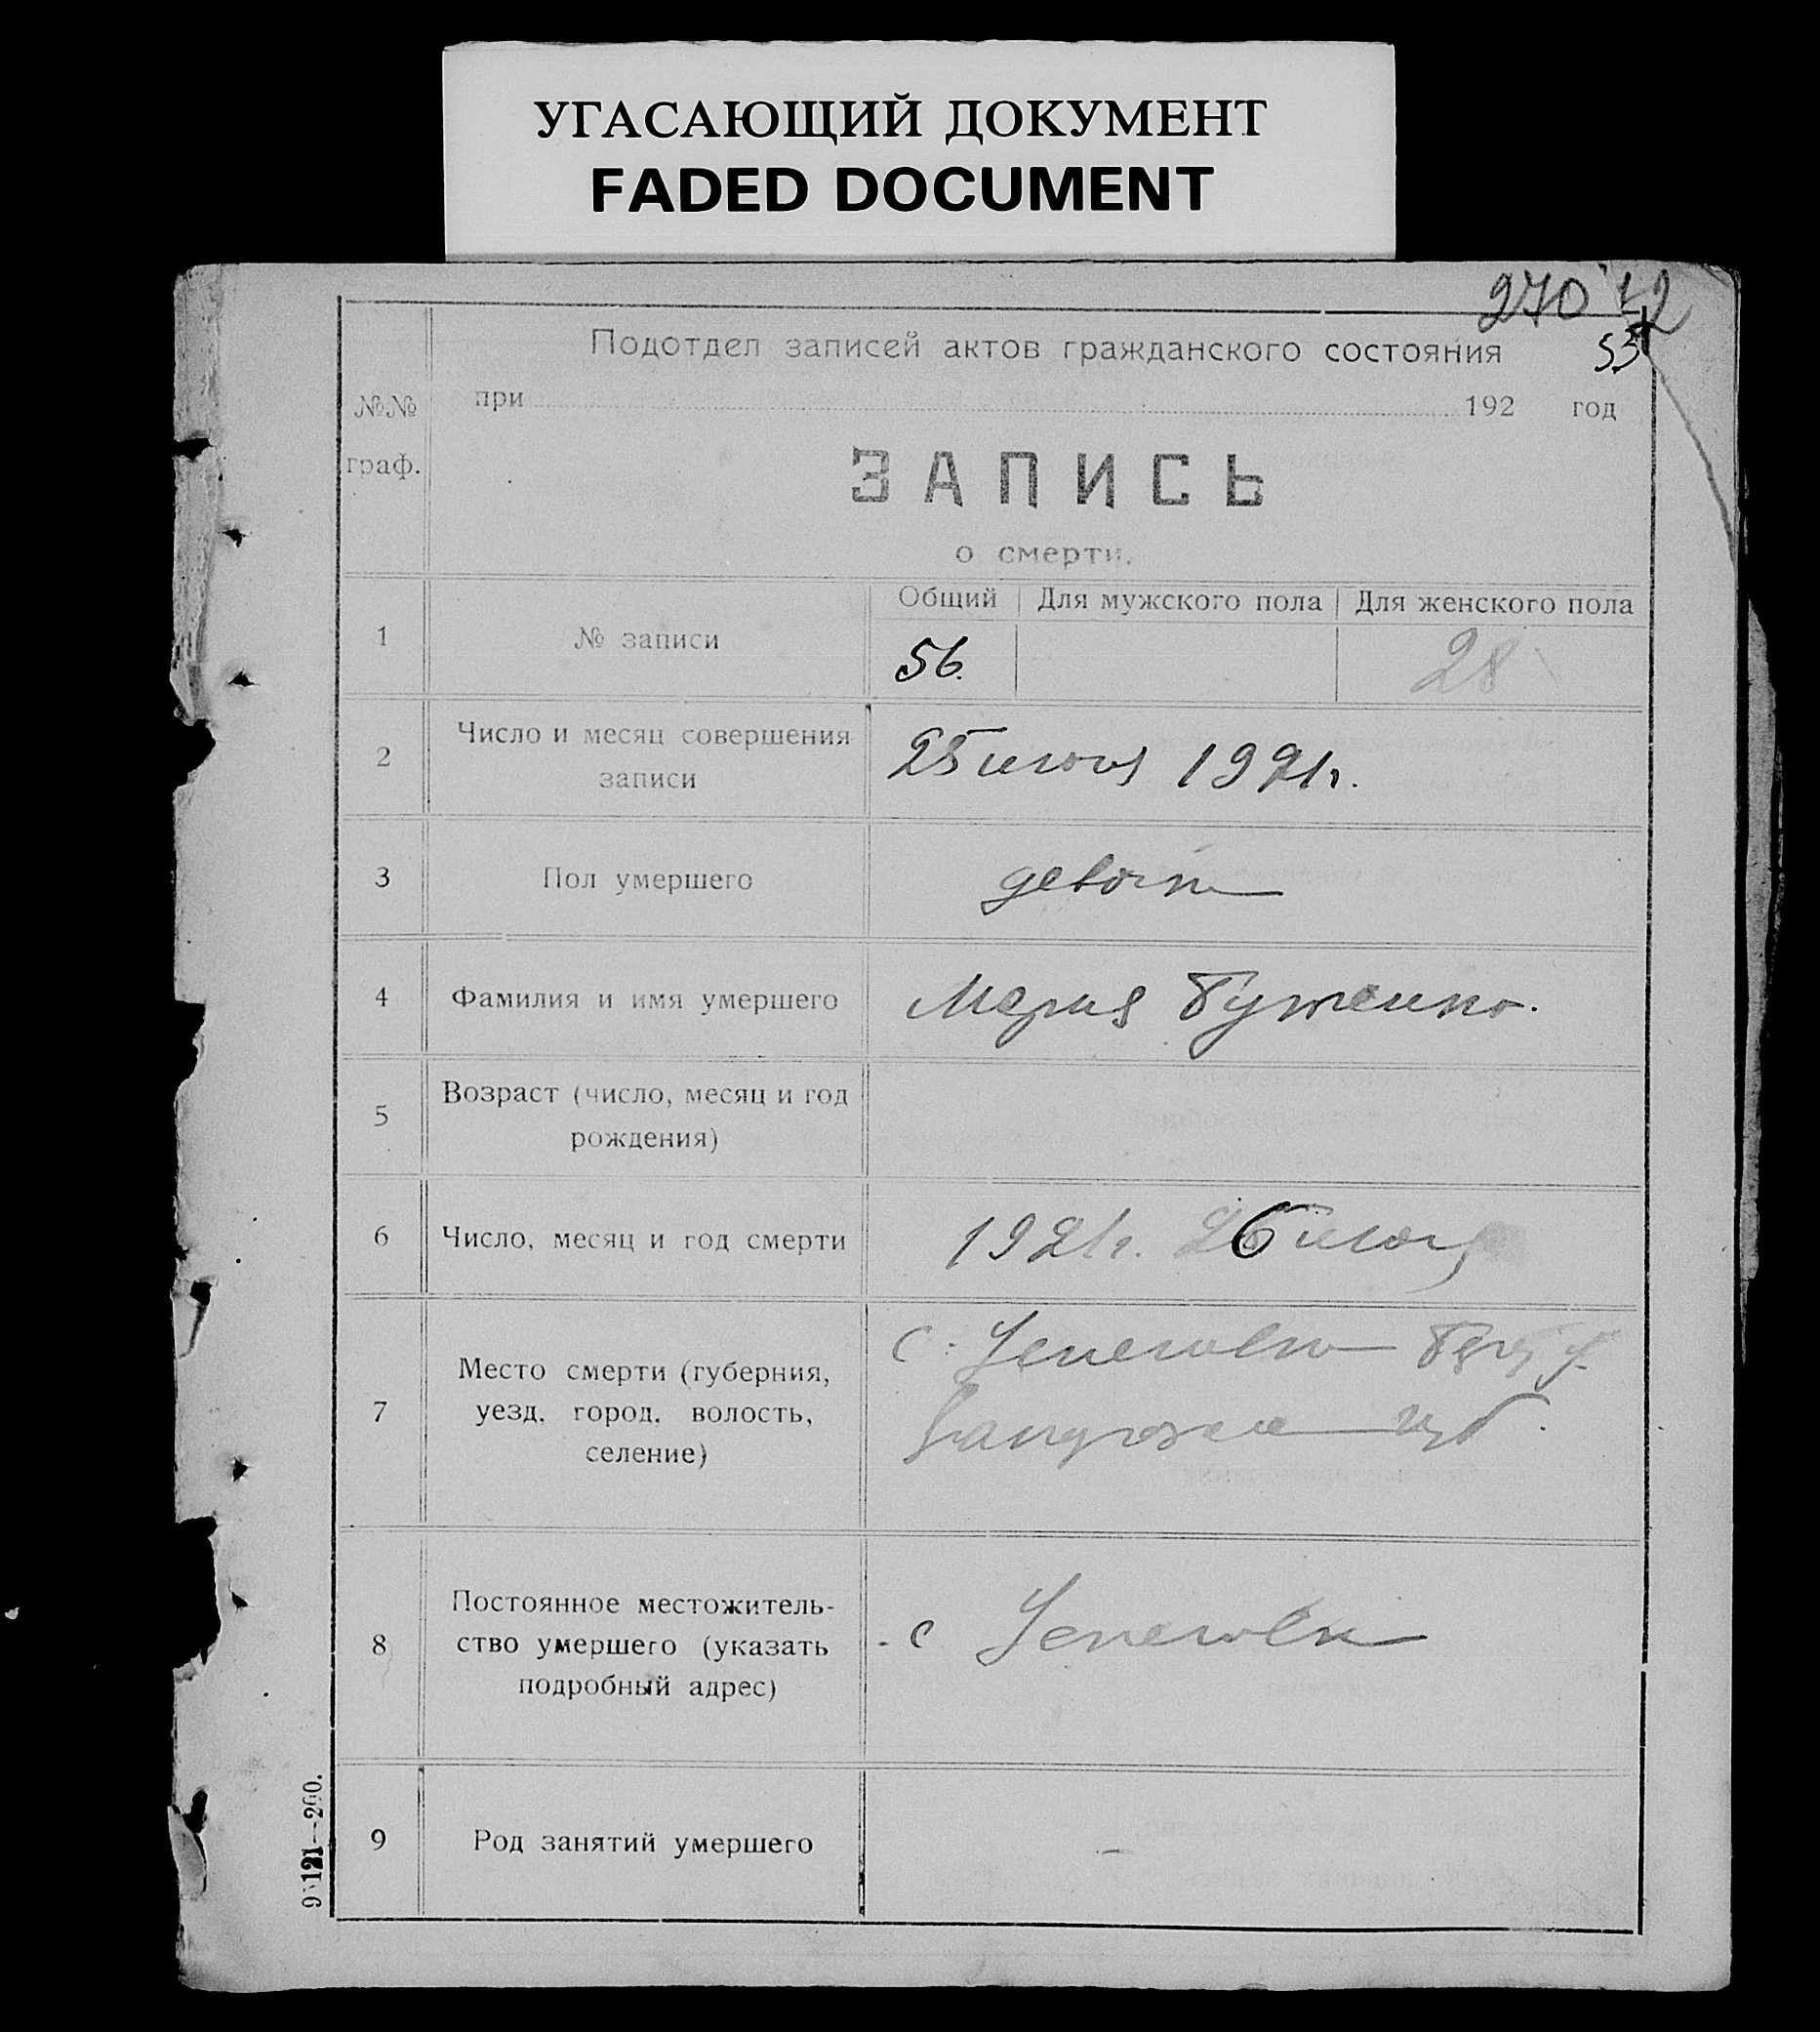 УГАСАЮЩИЙ ДОКУМЕНТ
FADED DOCUMENT
270
53
Подотдел записей актов гражданского состояния
№№ граф.
при 192 год
ЗАПИСЬ
о смерти.
Общий Для мужского пола Для женского пола
1 № записи 56. 28
2 Число и месяц совершения
записи
25 июня 1921г.
3 Пол умершего
4 Фамилия и имя умершего Мария Буженко.
5 Возраст (число, месяц и год
рождения)
6 Число, месяц и год смерти 1921г. 26 июня
7 Место смерти (губерния,
уезд, город, волость,
селение)
с.
губ.
8 Постоянное местожитель-
ство умершего (указать
подробный адрес)
с
9 Род занятий умершего –